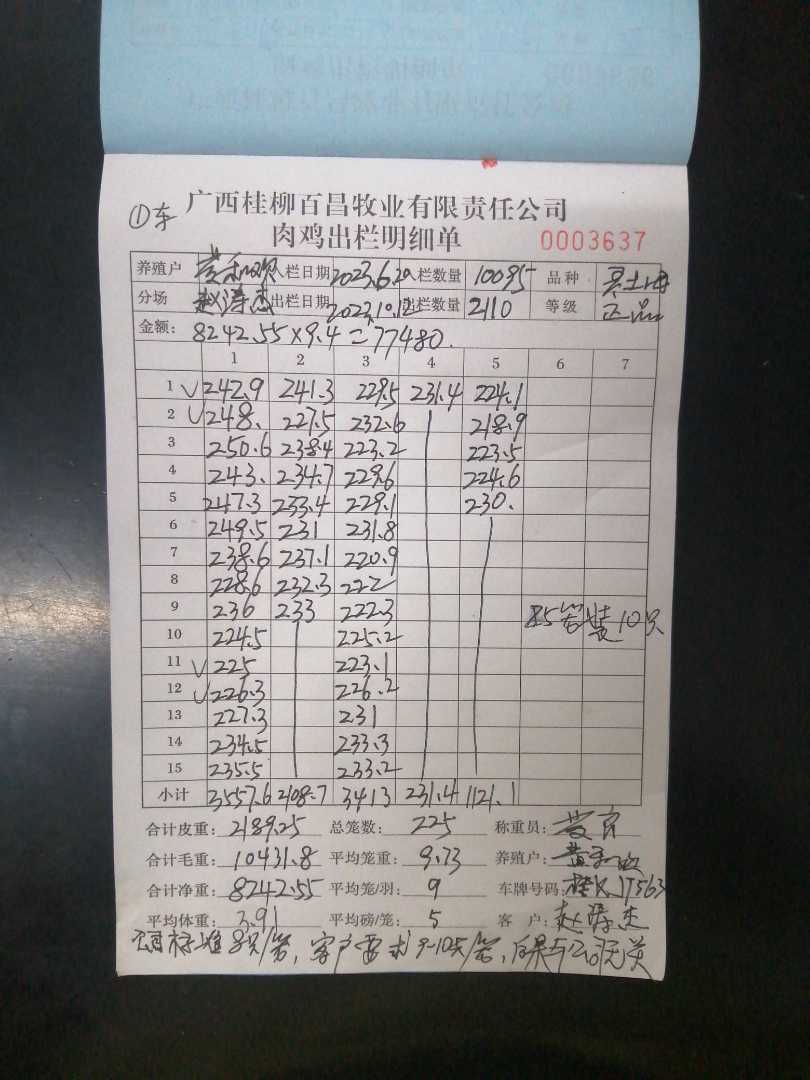 ①车 广西桂柳百昌牧业有限责任公司
肉鸡出栏明细单 0003637
养殖户 入栏日期 2023.6.20 入栏数量 10095 品种
分场 赵涛杰 出栏日期 2023.10.12 出栏数量 2110 等级 正品
金额: 8242.55×9.4=77480.
1 2 3 4 5 6 7
1 √242.9 241.3 229.5 231.4 224.1
2 √248. 227.5 232.6 218.9
3 250.6 238.4 223.2 223.5
4 243. 234.7 229.6 224.6
5 247.3 233.4 229.1 230.
6 249.5 231 231.8
7 238.6 237.1 220.9
8 228.6 232.3 222
9 236 233 222.3 85笼装10只
10 224.5 225.2
11 √225 223.1
12 √226.3 226.2
13 227.3 231
14 234.5 233.3
15 235.5 233.2
小计 3557.6 2108.7 3413 231.4 1121.1
合计皮重: 2189.25 总笼数: 225 称重员:
合计毛重: 10431.8 平均笼重: 9.73 养殖户:
合计净重: 8242.55 平均笼/羽: 9 车牌号码:
平均体重: 3.91 平均磅/笼: 5 客户: 赵涛杰
标准8只/笼,客户要求9-10只/笼,后果与公司无关